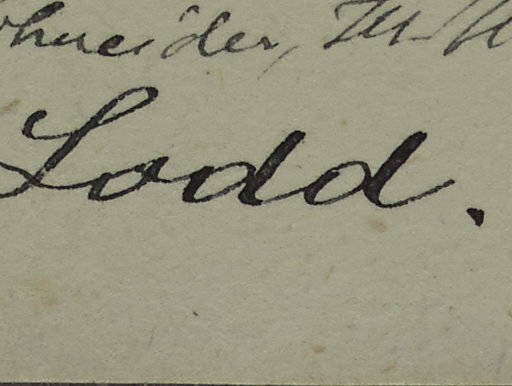 chneider,
Lodd.